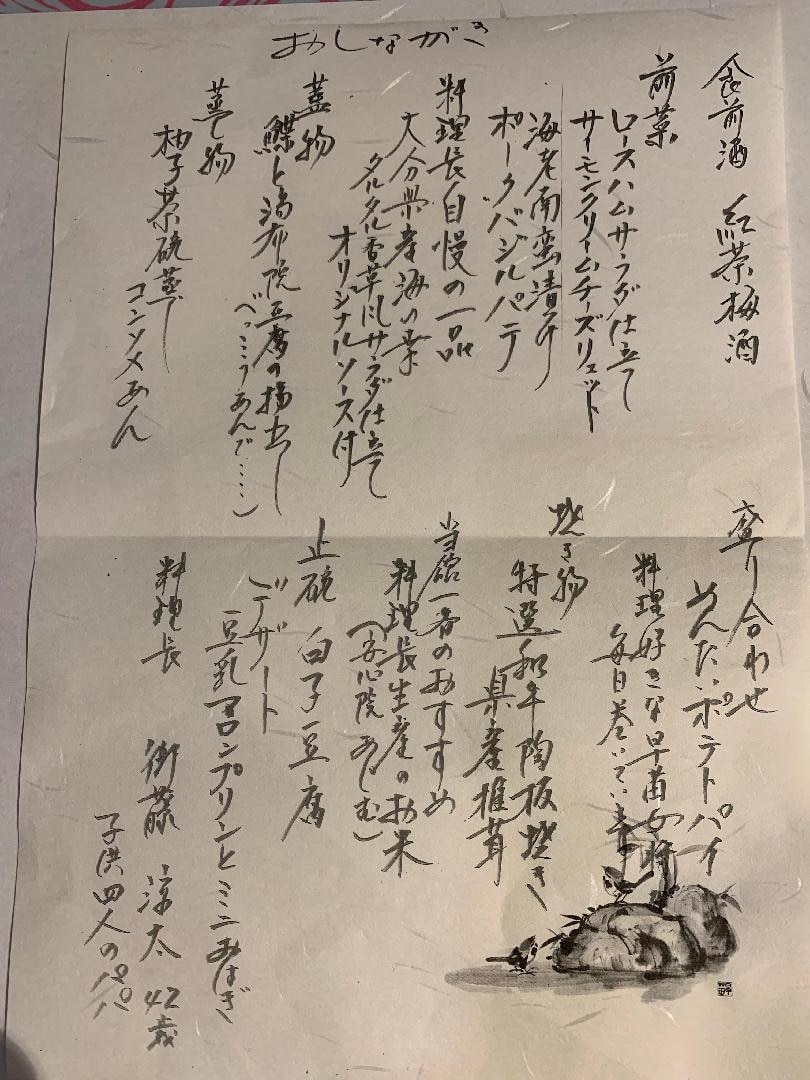 おしながき
食前酒 紅茶梅酒
前菜
ロースハムサラダ仕立て
サーモンクリームチーズリエット
海老南蛮漬け
ポークバジルパテ
料理長自慢の一品
大分県産海の幸
タルタル香草風サラダ仕立て
オリジナルソース付
蓋物
鰈と湯布院豆腐の揚出し
べっこうあんで……)
蒸し物
柚子茶碗蒸し
コンソメあん
盛り合わせ
めんたいポテトパイ
料理好きな早苗女将
毎日巻いています
焼き物
特選和牛陶板焼き
県産椎茸
当館一番のおすすめ
料理長生産のお米
(安心院あじむ)
止碗 白子豆腐
デザート
豆乳マロンプリンとミニおはぎ
料理長 衛藤 涼太 42歳
子供四人のパパ